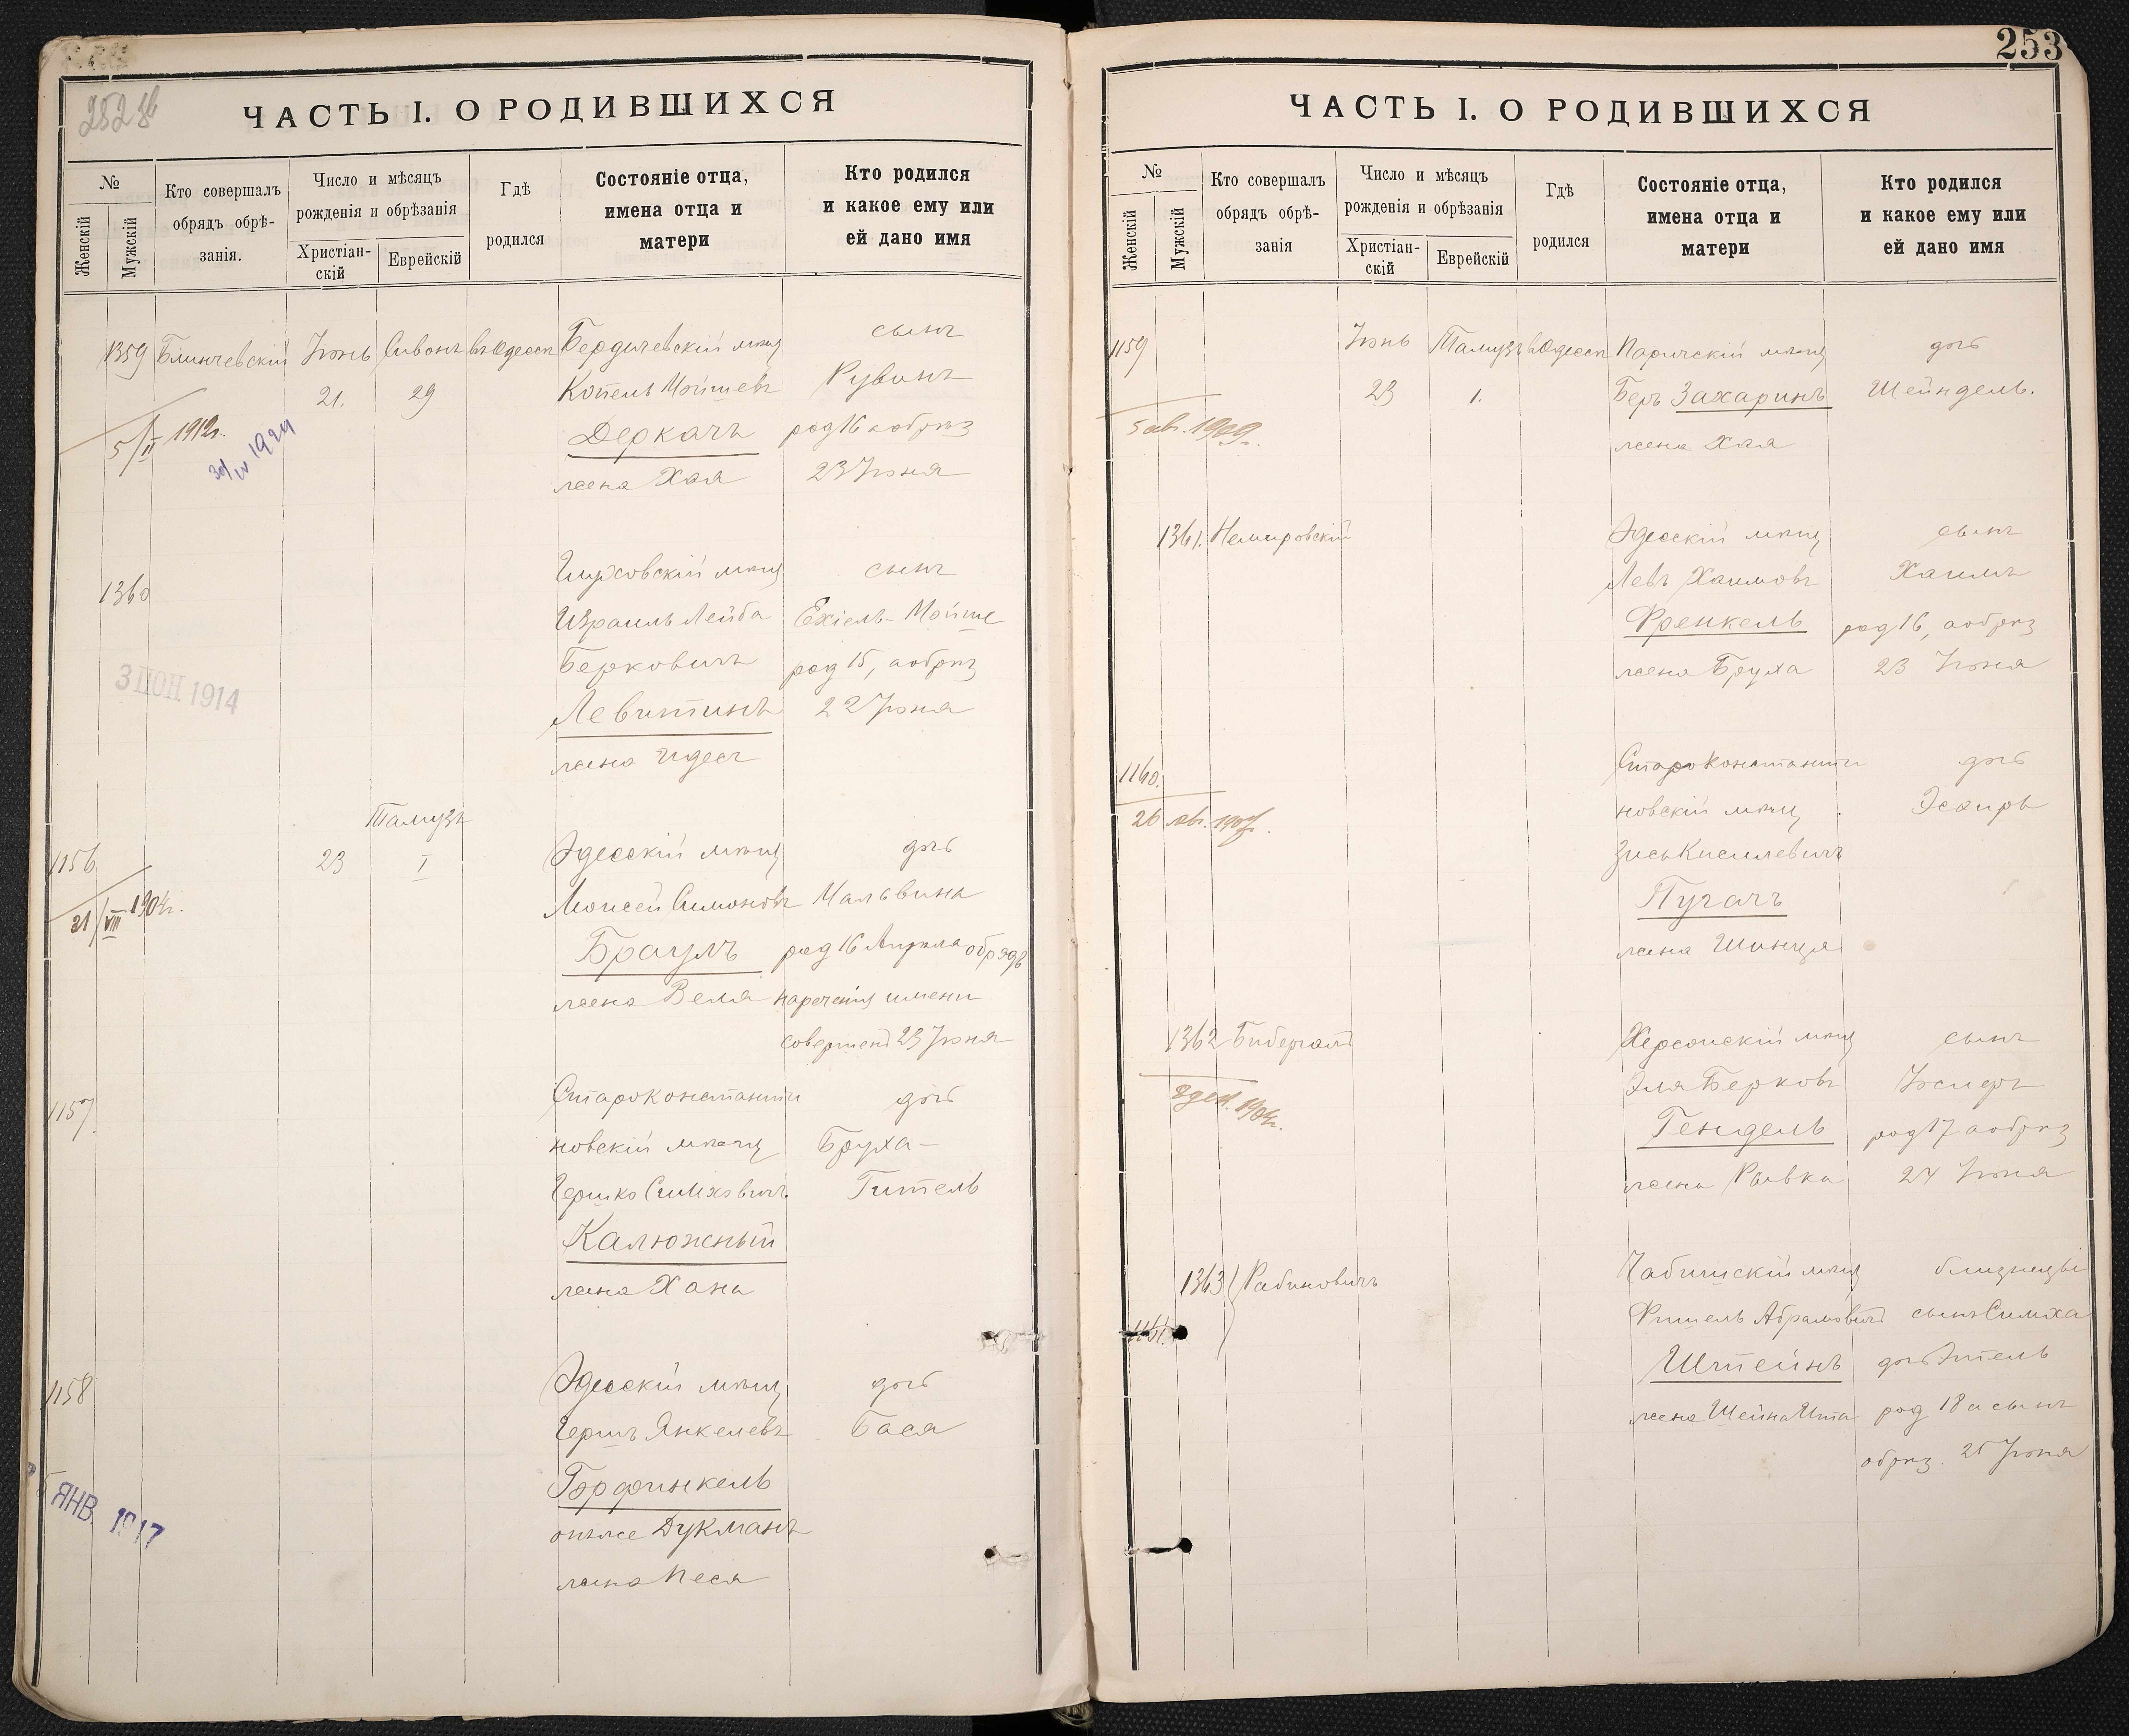 252 об
ЧАСТЬ I. О РОДИВШИХСЯ
№
Женскій
Мужскій
Кто совершалъ
обрядъ обрѣ-
занія.
Число и мѣсяцъ
рожденія и обрѣзанія
Христіан-
скій
Еврейскій
Гдѣ
родился
Состояніе отца,
имена отца и
матери
Кто родился
и какое ему или
ей дано имя
1359 Блинчевскій Іюнь Сивонъ въ Одессѣ Бердичевскій мѣщ сынъ
21. 29 Копель Мойшевъ Рувинъ
5/II 1912г. Деркачъ род 16 а обрѣз
30/IV 1924 жена Хая 23 Іюня
1360 сынъ
Израиль Лейба Ехіель-Мойше
Берковичъ род 15, а обрѣз
3 ІЮН 1914 Левитинъ 22 Іюня
жена Идесъ
Тамузъ
1156 23 I Одесскій мѣщ дочь
31/VIII 1904г. Моисей Симоновъ Мальвина
Браулъ род 16 Апрѣля обрядъ
жена Веля нареченія имени
совершенъ 23 Іюня
1157 Староконстанти дочь
новскій мѣщ Бруха-
Гершко Симховичъ Гитель
Калюжный
жена Хана
1158 Одесскій мѣщ дочь
Гершъ Янкелевъ Бася
Горфинкель
ЯНВ. 1917 онъ же Дукманъ
жена Песя
253
ЧАСТЬ I. О РОДИВШИХСЯ
№
Женскій
Мужскій
Кто совершалъ
обрядъ обрѣ-
занія
Число и мѣсяцъ
рожденія и обрѣзанія
Христіан-
скій
Еврейскій
Гдѣ
родился
Состояніе отца,
имена отца и
матери
Кто родился
и какое ему или
ей дано имя
1159 Іюнь Тамузъ въ Одессѣ Паричскій мѣщ дочь
23 1. Беръ Захаринъ Шейндель.
5 авг. 1909г. жена Хая
1361. Немировскій Одесскій мѣщ сынъ
Левъ Хаимовъ Хаимъ
Френкель род 16, а обрѣз
жена Бруха 23 Іюня
1160. Староконстанти дочь
26 авг. новскій мѣщ Эсѳирь
Зись Кисилевичъ
Пугачъ
жена Шинця
1362 Бибергалъ Херсонскій мѣщ сынъ
Эля Берковъ Іосифъ
Гендель род 17 а обрѣз
жена Рывка 24 Іюня
1363 Рабиновичъ мѣщ близнецы
1161. Фишель Абрамовичъ сынъ Симха
Штейнъ дочь Этель
жена Шейна Ита род 18 а сынъ
обрѣз. 25 Іюня